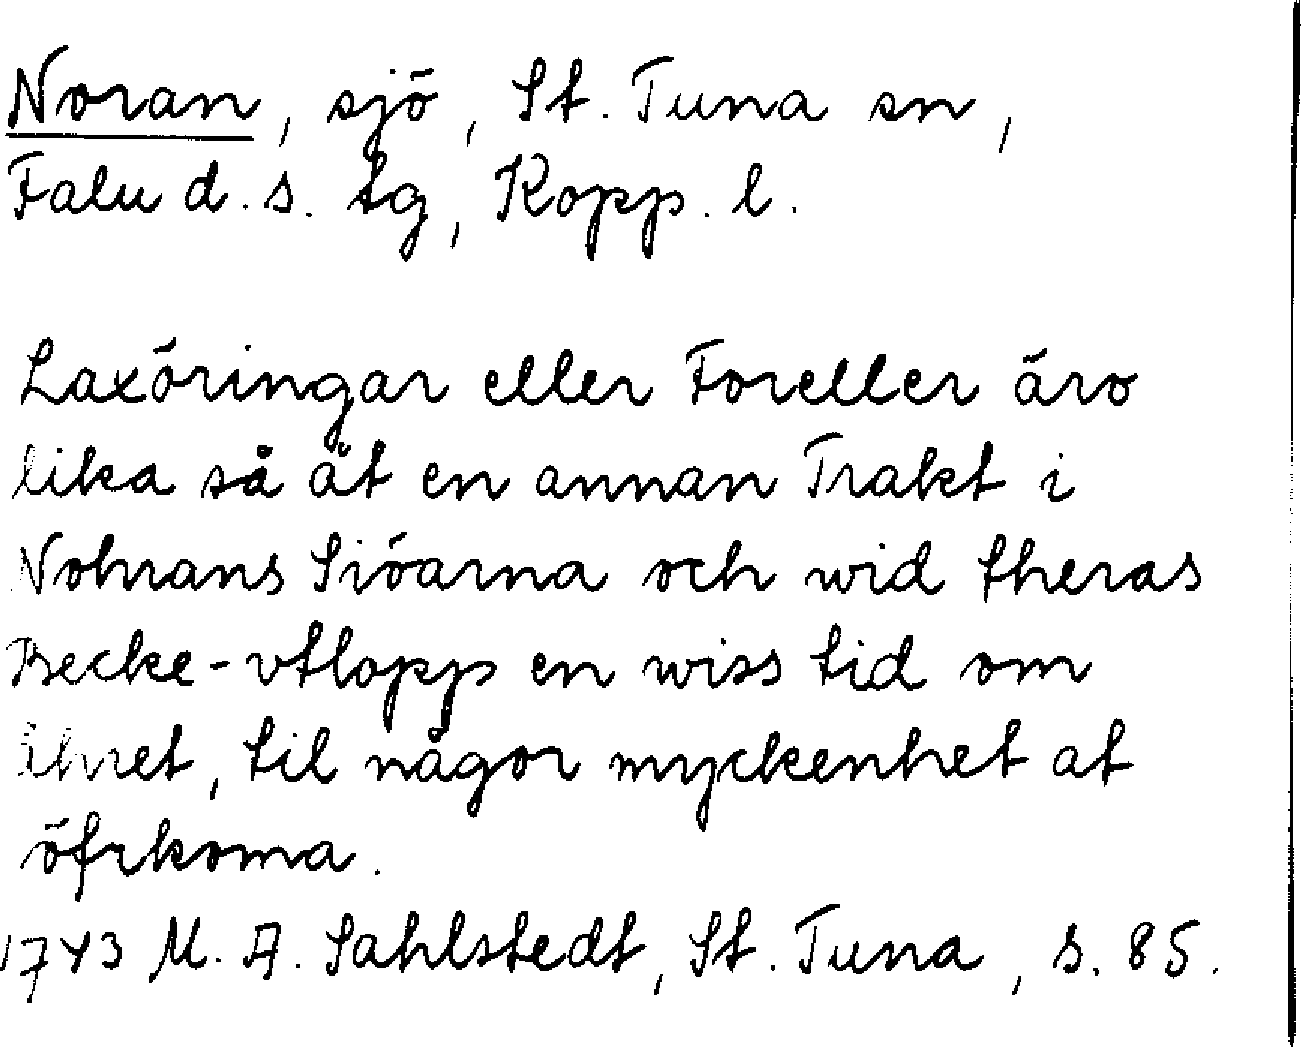 Noran, sjö, St. Tuna sn,
Falu d. s. tg, Kopp. l.
Laxöringar eller Foreller äro
lika så ät en annan Trakt i
Nohrans Siöarna och wid theras
Becke-vtlopp en wiss tid om
åhret, til någor myckenhet at
öfrkoma.
1743 M. A. Sahlstedt, St. Tuna, s. 85.